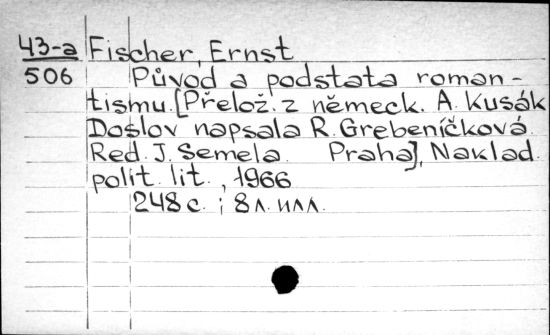 43-a Fischer, Ernst
506 Původ a podstata roman-
tismu. [Přelož. z německ. A. Kusák
Doslov napsala R. Grebeníčková.
Red. J. Semela. Praha], Naklad.
polit. lit., 1966
248 с. ; 8 л. илл.